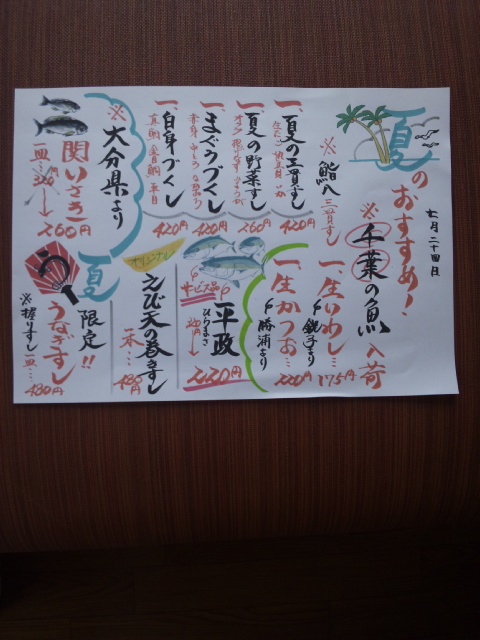 七月二十四日
夏のおすすめ!
※千葉の魚入荷
一、生いわし…175円
銚子より
一、生かつお…220円
勝浦より
※鮨八三貫すし
一、夏の三貫すし
420円
一、夏の野菜すし
260円
一、まぐろづくし
420円
一、白身づくし
真鯛 金目鯛 平目
420円
サービス品
平政
ひらまさ
220円
オリジナル
えび天の巻きすし
一本…480円
※大分県より
関いさき
一皿…260円
夏限定!!
うなぎすし
※握りすし一皿…480円